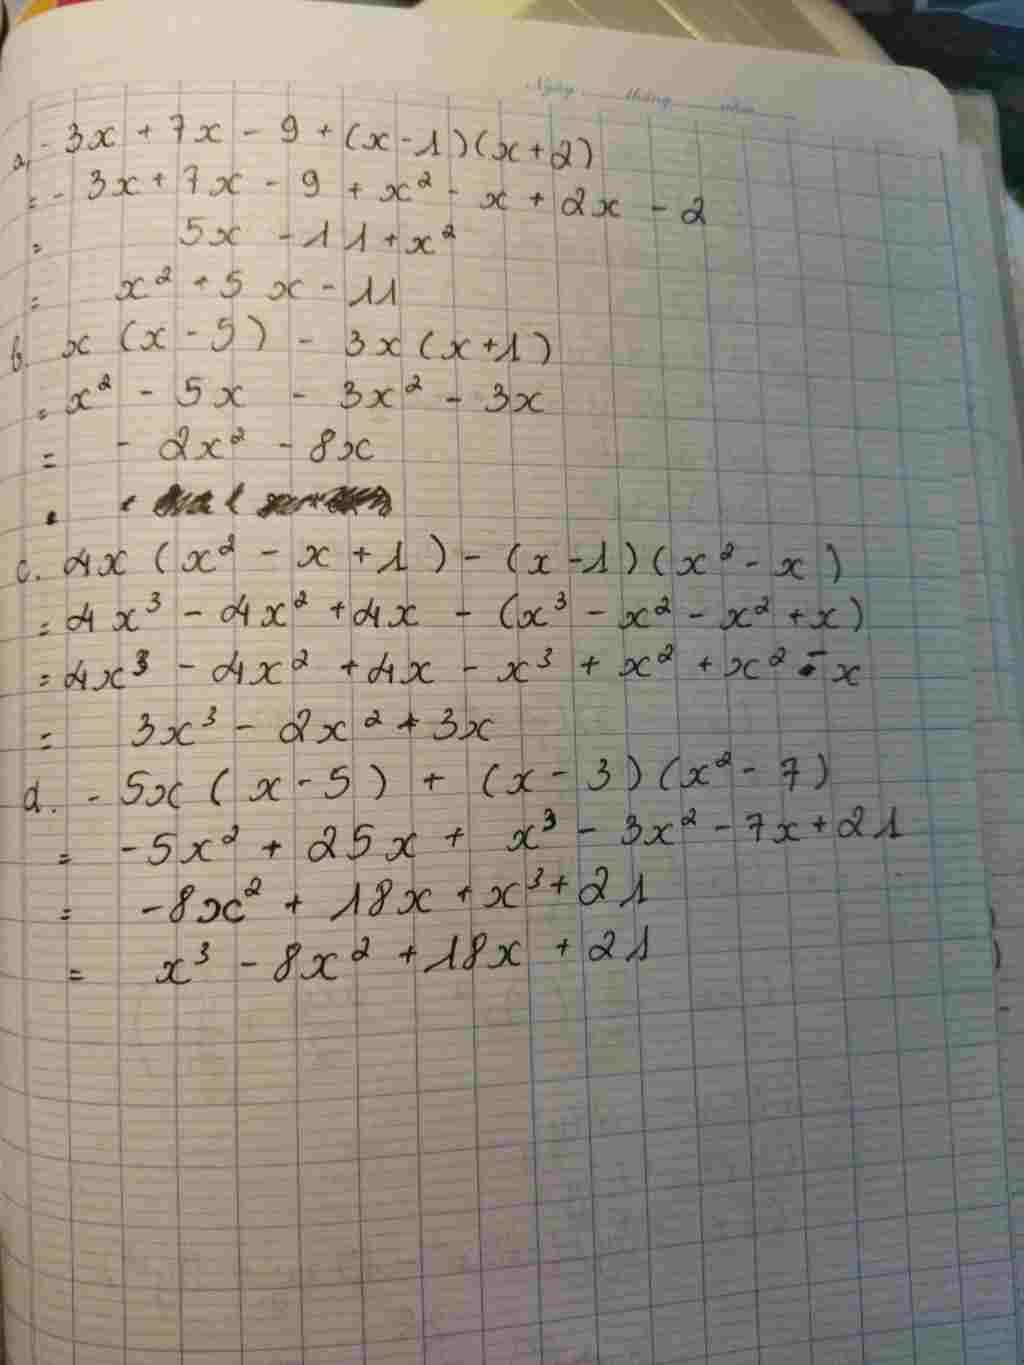 Ngày tháng năm
a, - 3x + 7x - 9 + (x-1)(x+2)
= - 3x + 7x - 9 + x² - x + 2x - 2
= 5x - 11 + x²
= x² + 5x - 11
b. x (x - 5) - 3x (x+1)
= x² - 5x - 3x² - 3x
= - 2x² - 8x
c. 4x (x² - x + 1) - (x-1)(x² - x)
= 4x³ - 4x² + 4x - (x³ - x² - x² + x)
= 4x³ - 4x² + 4x - x³ + x² + x² - x
= 3x³ - 2x² + 3x
d. - 5x (x - 5) + (x - 3)(x² - 7)
= -5x² + 25x + x³ - 3x² - 7x + 21
= -8x² + 18x + x³ + 21
= x³ - 8x² + 18x + 21